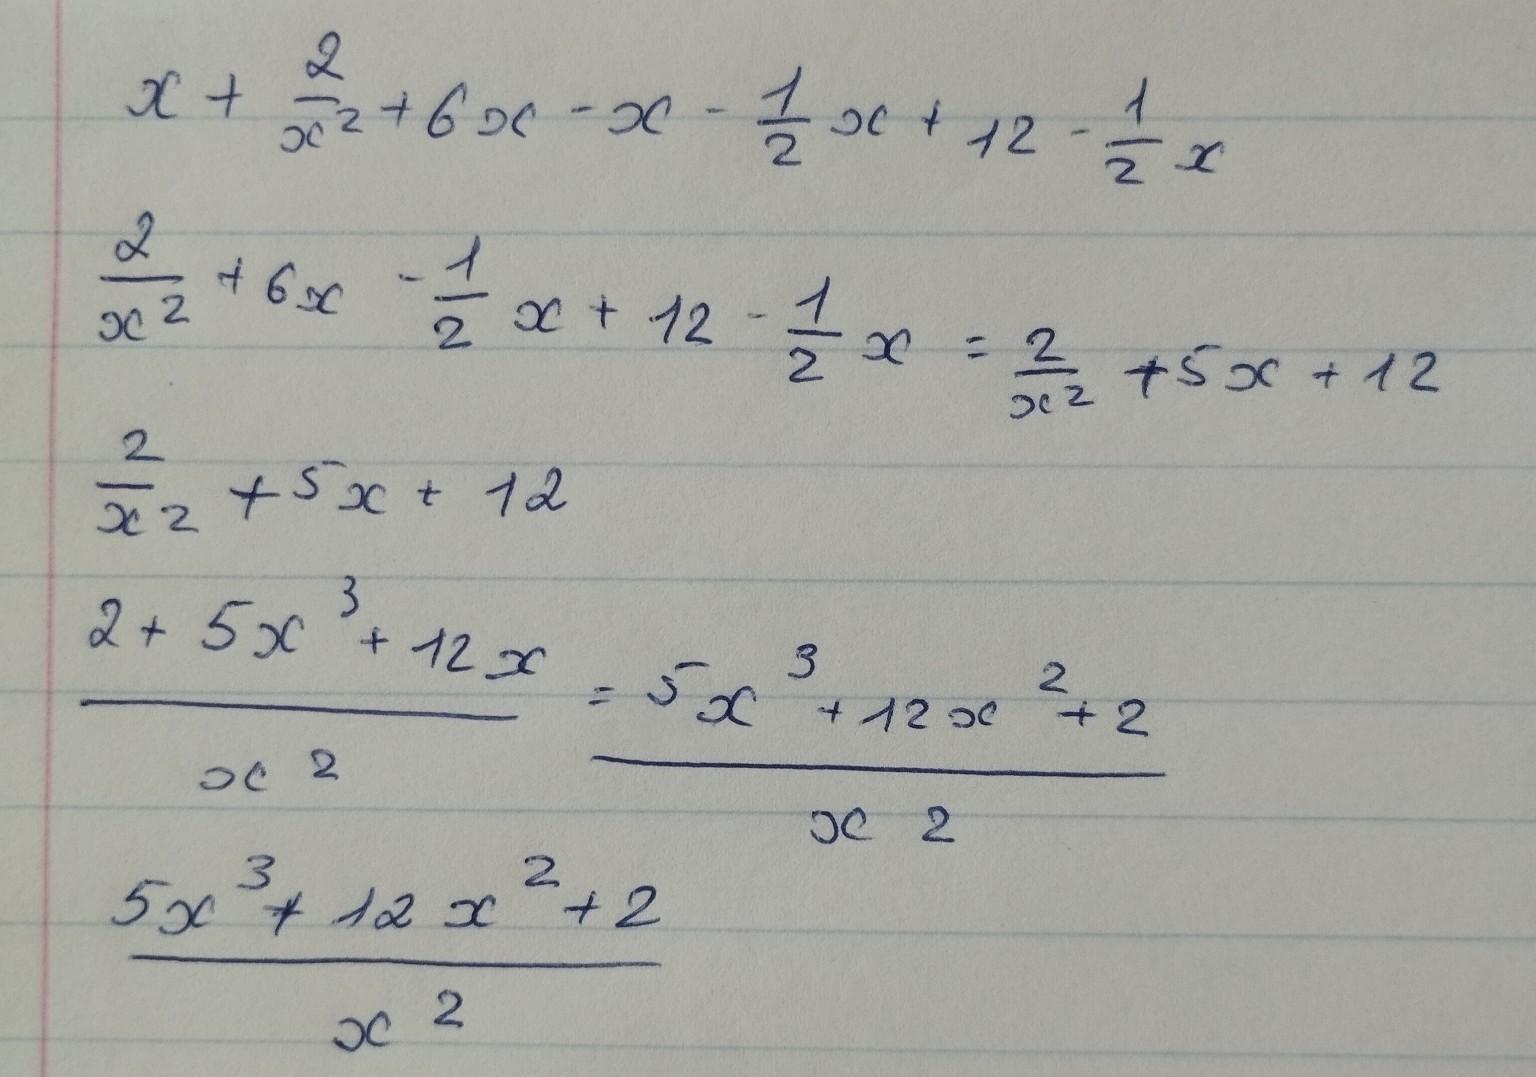 x + 2/x² + 6x - x - 1/2 x + 12 - 1/2 x
2/x² + 6x - 1/2 x + 12 - 1/2 x = 2/x² + 5x + 12
2/x² + 5x + 12
(2 + 5x³ + 12x)/x² = (5x³ + 12x² + 2)/x²
(5x³ + 12x² + 2)/x²